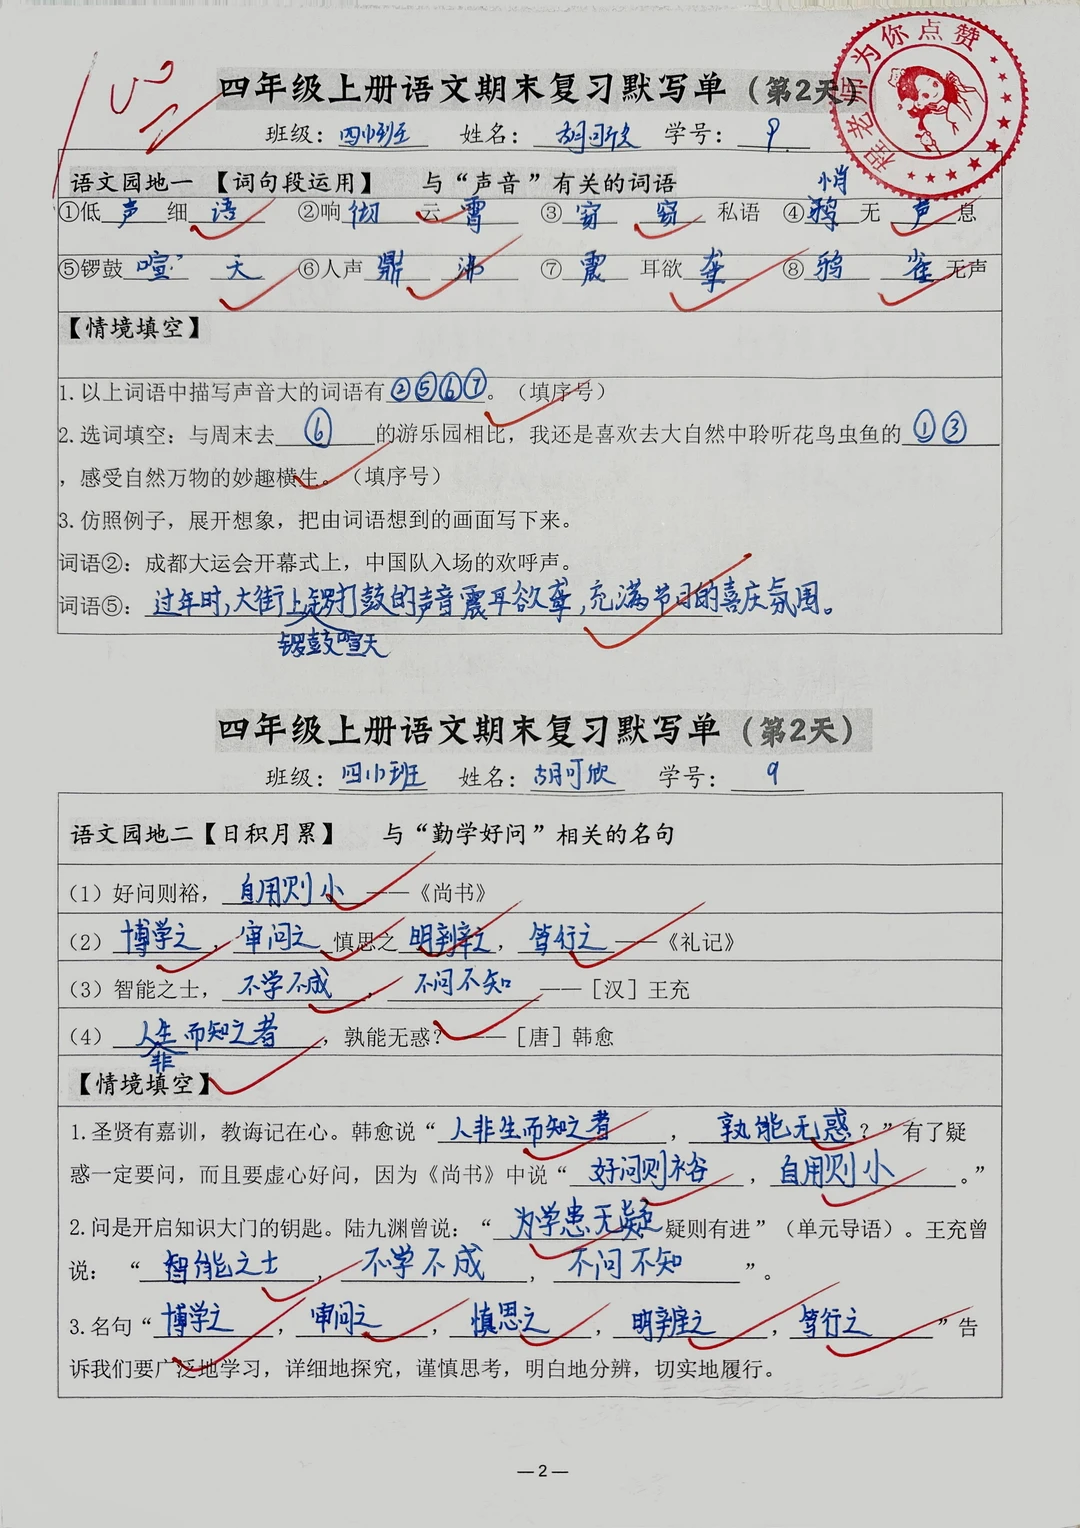 100
四年级上册语文期末复习默写单（第2天）
程老师为你点赞
班级：四小班 姓名：胡可欣 学号：9
语文园地一 【词句段运用】 与“声音”有关的词语
悄
①低声细语 ②响彻云霄 ③窃窃私语 ④鸦无声息
⑤锣鼓喧天 ⑥人声鼎沸 ⑦震耳欲聋 ⑧鸦雀无声
【情境填空】
1.以上词语中描写声音大的词语有②⑤⑥⑦。（填序号）
2.选词填空：与周末去⑥的游乐园相比，我还是喜欢去大自然中聆听花鸟虫鱼的①③
，感受自然万物的妙趣横生。（填序号）
3.仿照例子，展开想象，把由词语想到的画面写下来。
词语②：成都大运会开幕式上，中国队入场的欢呼声。
词语⑤：过年时，大街上锣打鼓的声音震耳欲聋，充满节日的喜庆氛围。
锣鼓喧天
四年级上册语文期末复习默写单（第2天）
班级：四小班 姓名：胡可欣 学号：9
语文园地二【日积月累】 与“勤学好问”相关的名句
（1）好问则裕，自用则小——《尚书》
（2）博学之，审问之 慎思之 明辨之，笃行之——《礼记》
（3）智能之士，不学不成，不问不知——［汉］王充
（4）人生而知之者，孰能无惑？——［唐］韩愈
非
【情境填空】
1.圣贤有嘉训，教诲记在心。韩愈说“人非生而知之者，孰能无惑？”有了疑
惑一定要问，而且要虚心好问，因为《尚书》中说“好问则裕，自用则小。”
2.问是开启知识大门的钥匙。陆九渊曾说：“为学患无疑疑则有进”（单元导语）。王充曾
说：“智能之士，不学不成，不问不知”。
3.名句“博学之，审问之，慎思之，明辨之，笃行之”告
诉我们要广泛地学习，详细地探究，谨慎思考，明白地分辨，切实地履行。
—2—